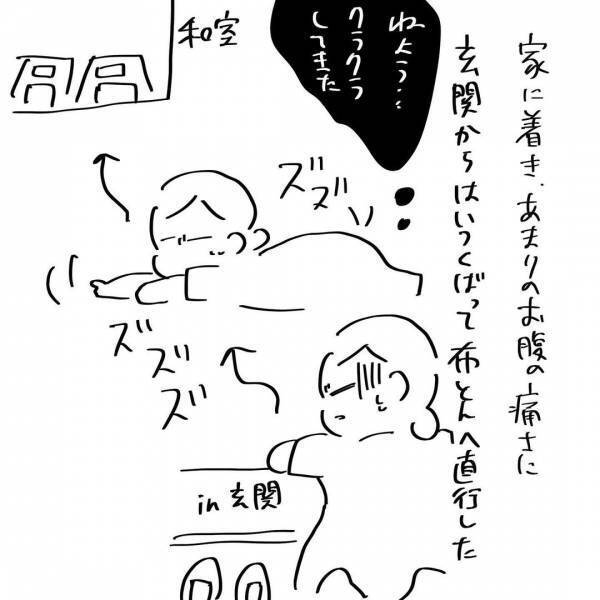 家に着き、あまりのお腹の痛さに
玄関からはいつくばって布とんへ直行した
ねよう‥
クラクラ
してきた
和室
ズズ
ズズズ
in 玄関